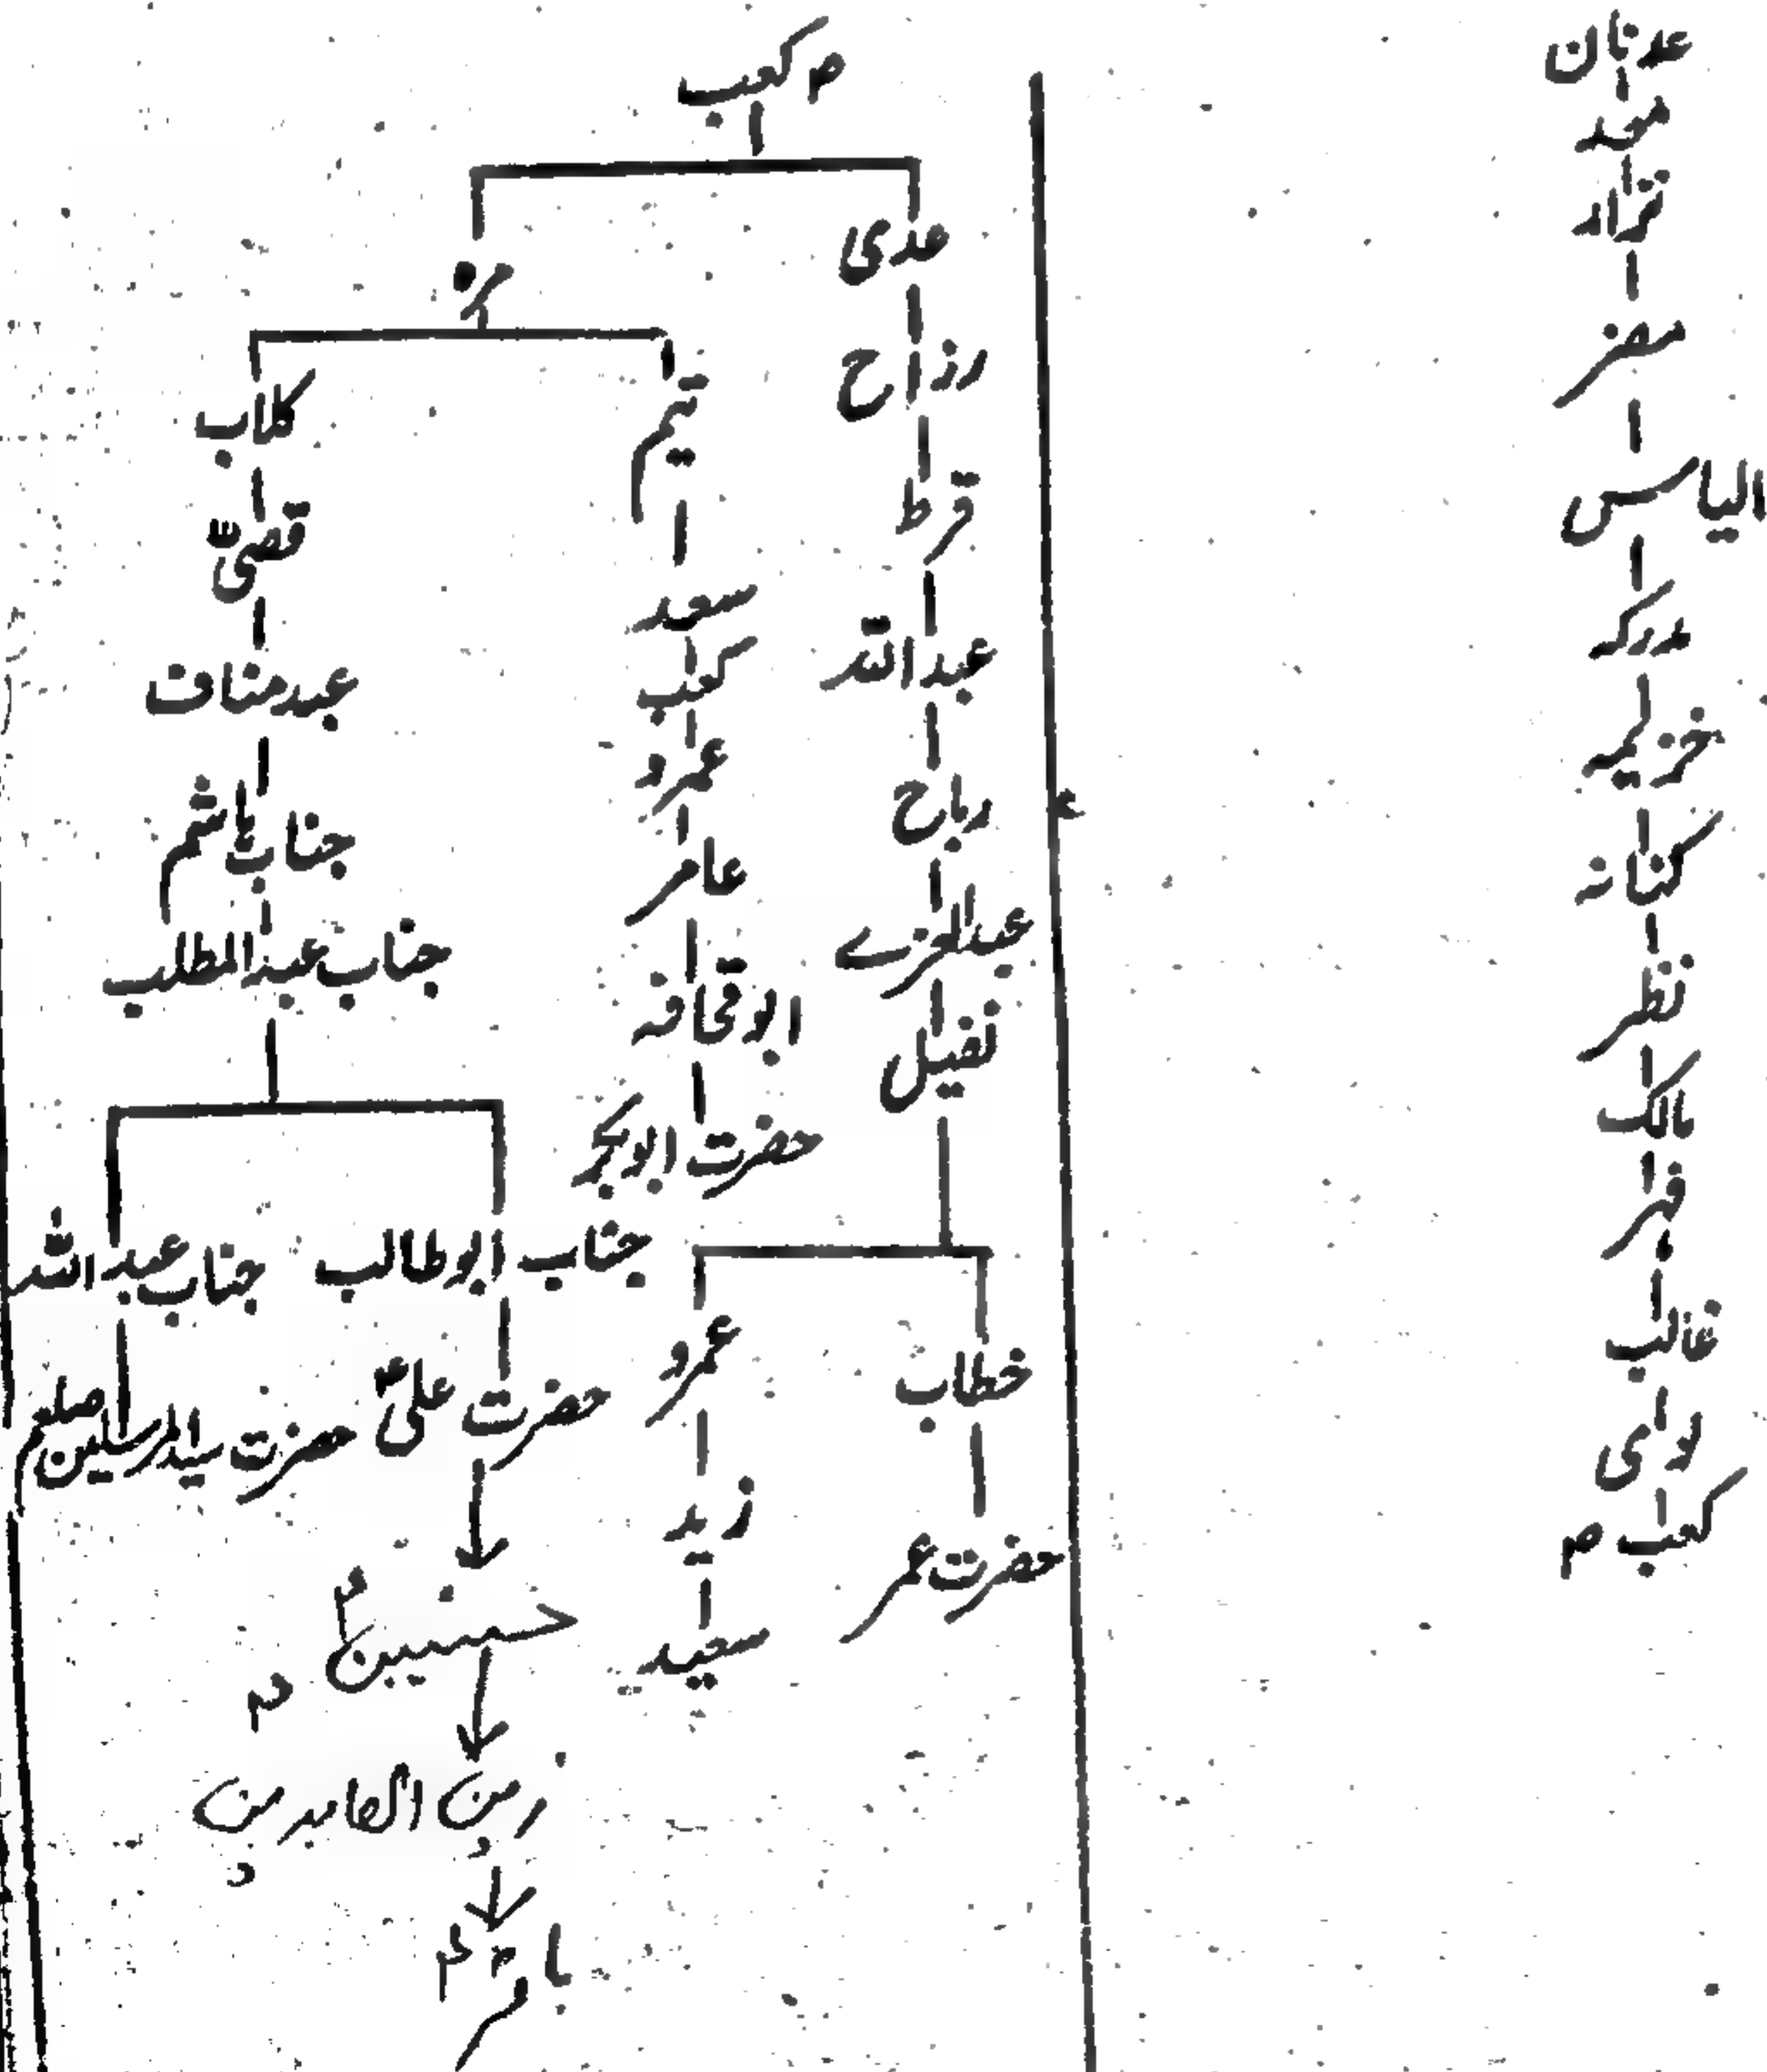 عدنان
معد
نزار
مضر
الیاس
مدرکہ
خزیمہ
کنانہ
نظر
مالک
فہر
غالب
لوای
کعب م
م کعب
عدی
رزاح
قرط
عبداللہ
رباح
عبدالعزے
نفیل
خطاب
حضرت عمر
عمرو
زید
سعید
مرہ
تیم
سعد
کعب
عمرو
عامر
ابوقحافہ
حضرت ابوبکر
کلاب
قصیّ
عبدمناف
جناب ہاشم
جناب عبدالمطلب
جناب ابوطالب
حضرت علیؑ
حسنینؑ
م
زین العابدین
باقرؑ
جناب عبداللہ
حضرت سیدالمرسلین صلعم